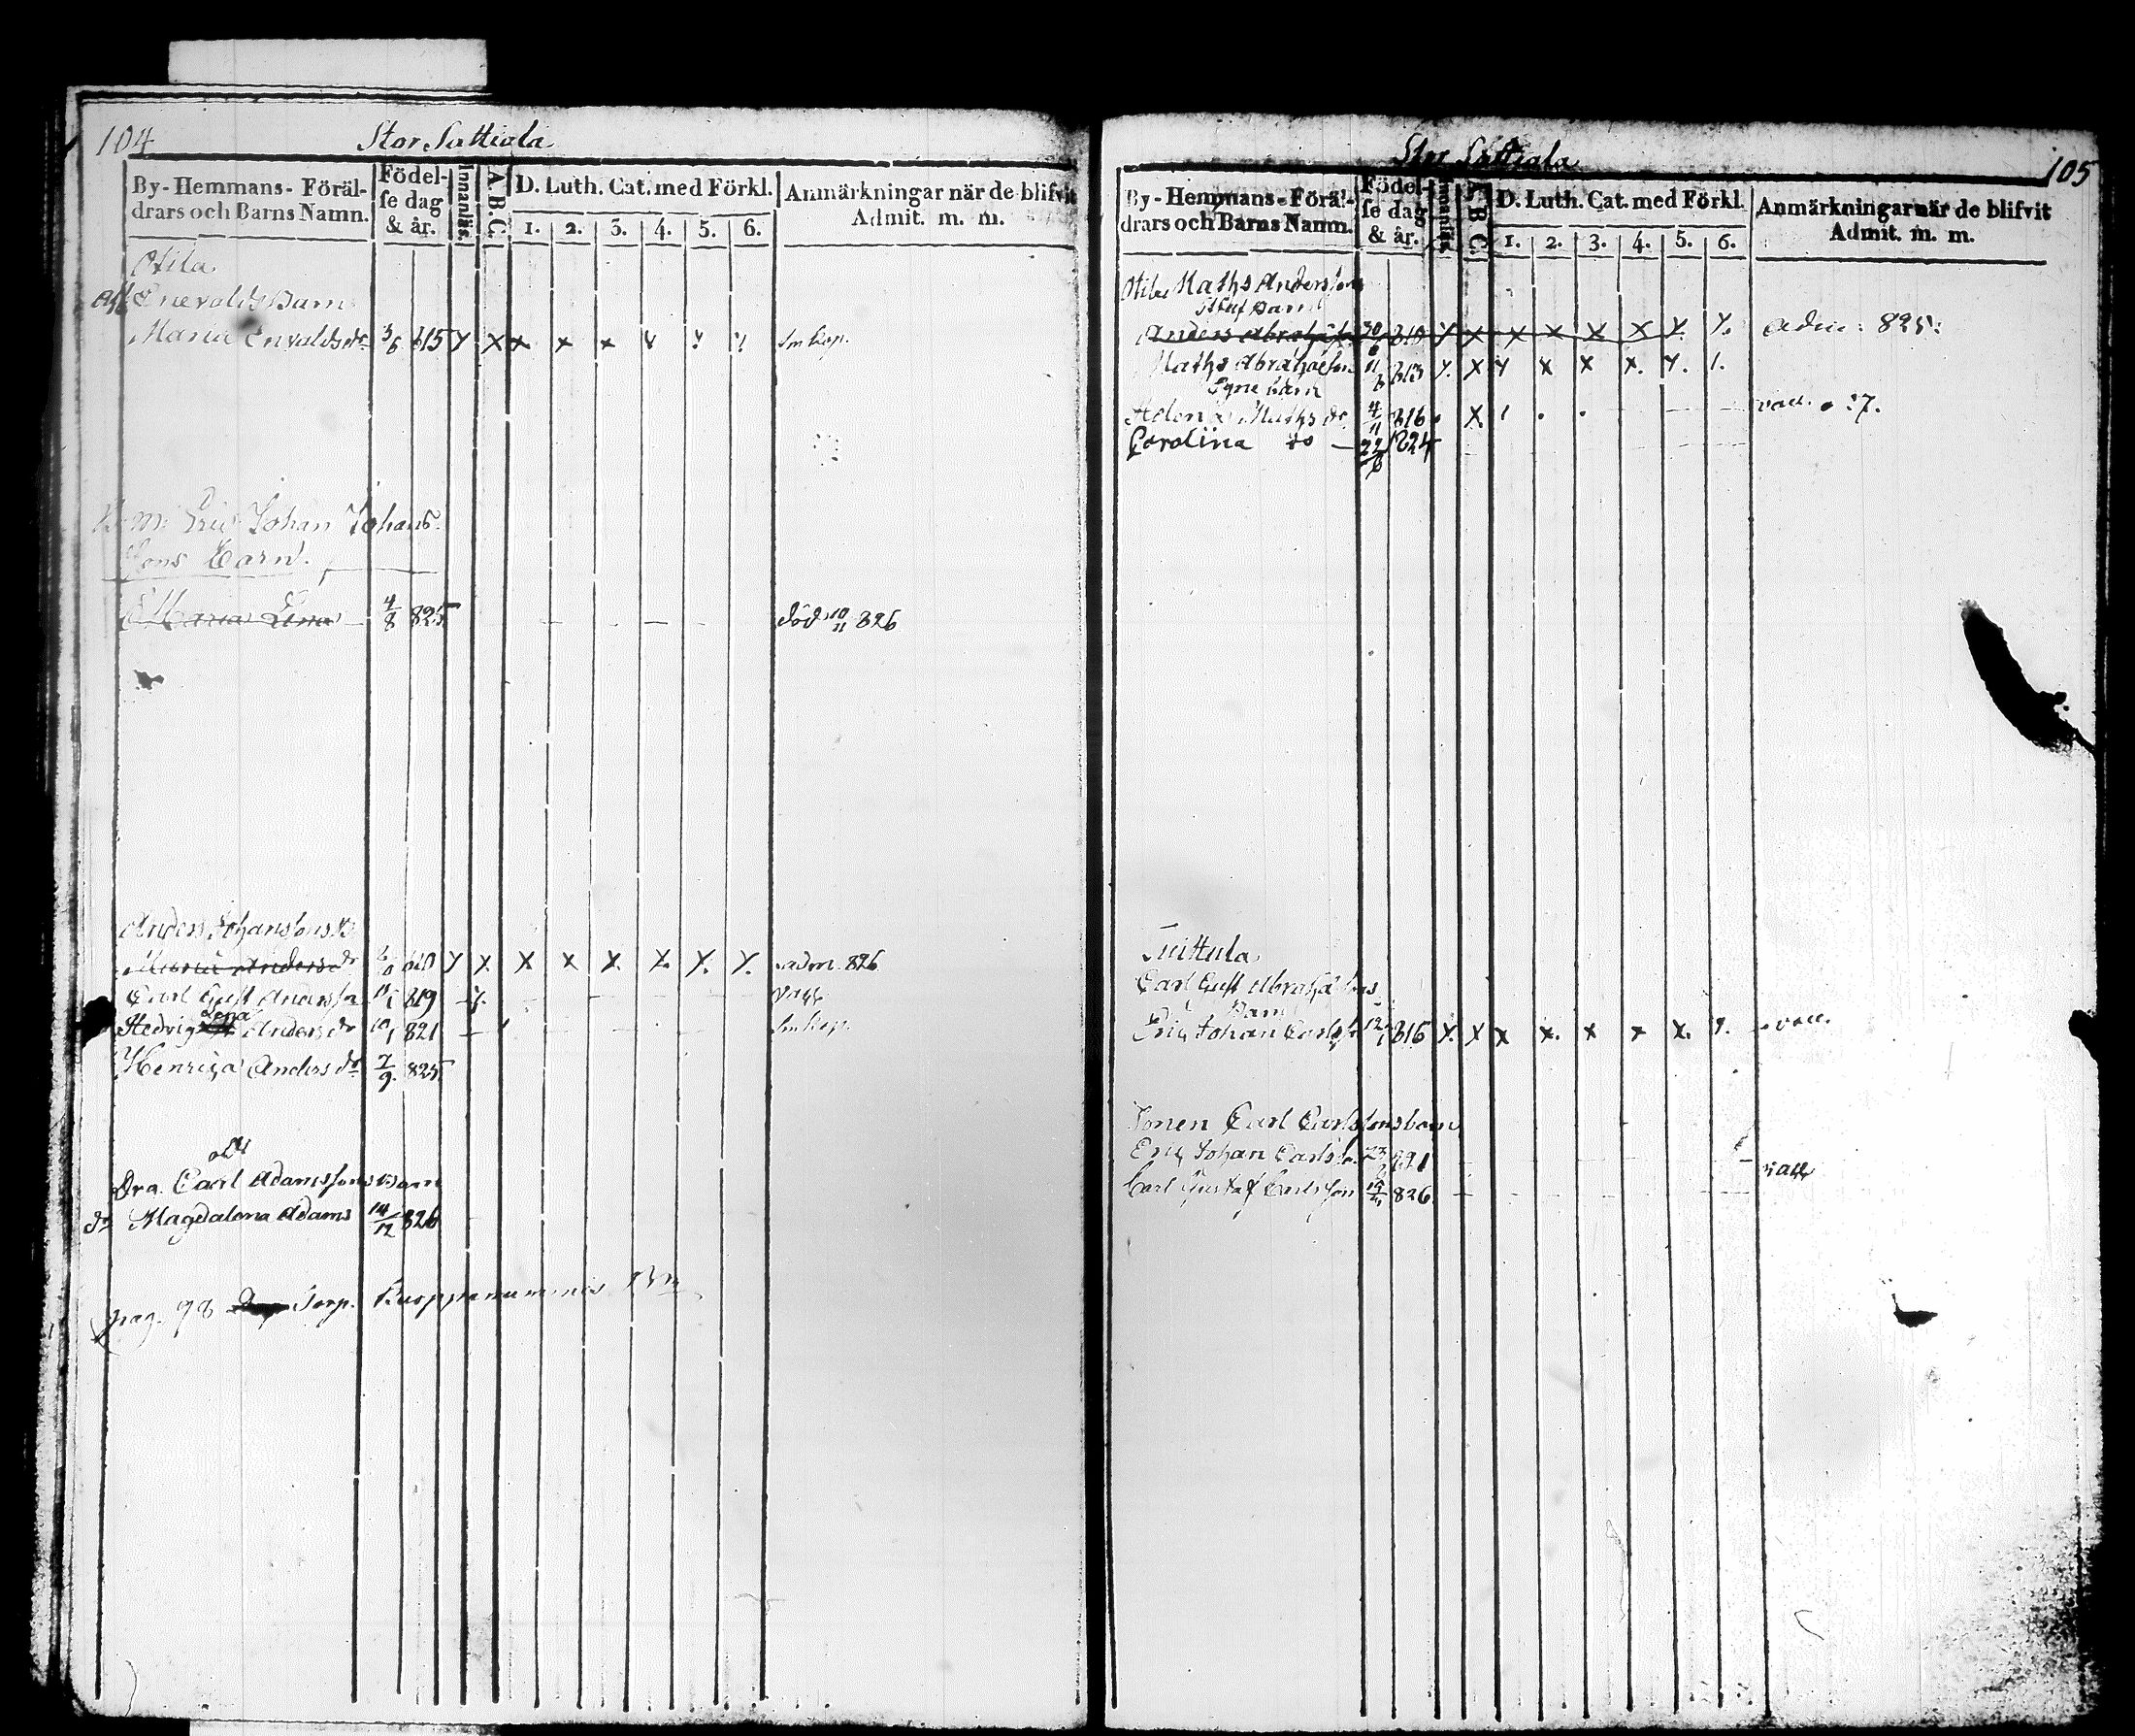 104
Stor Sattiala
By-Hemmans-Föräl-
drars och Barns Namn.
Födel-
se dag
& år.
Innanläs.
A.B.C.
D. Luth. Cat. med Förkl.
1. 2. 3. 4. 5. 6.
Anmärkningar när de blifvit
Admit. m. m.
Otila
Enevalds Barn
Maria Envalds dr 3/6 815 y x x x x y y y Smkop.
Johan Johans-
sons Barn.
Maria Lena 4/8 825 död 10/11 826
Anders Johanssons
Maria Anders dr y x. x x x. x. y. y. adm. 826
Carl Gust Anderss 819 vacc
Lena
Hedvig Anders dr 10/1 821 Smkop.
Henrica Anders dr 7/9. 825.
Dra. Carl Adamssons Barn
dr Magdalena Adams 14/12 826
pag. 98 Torp.
Stor Sattiala
105
By-Hemmans-Föräl-
drars och Barns Namn.
Födel-
se dag
& år.
Innanläs.
A.B.C.
D. Luth. Cat. med Förkl.
1. 2. 3. 4. 5. 6.
Anmärkningar när de blifvit
Admit. m. m.
Otila Maths Anderssons
Stuf Barn
Anders Abrahamss 30/6 810 y x x x x x y. y. adm: 825:
Maths Abrahamson 11/6 813 y. x y x x x. y. 1.
Egne barn
Helena Maths dr 4/11 816 x vacc.
Carolina do — 22/6 1824
Tuittula
Carl Gust Abrahamssons
Barn
Eric Johan Carlss 816 x. x x x. x x x. y. vacc.
Sonen Carl Carlssons barn
Eric Johan Carlss. 821 vacc
Carl Gustaf Carlsson 826.